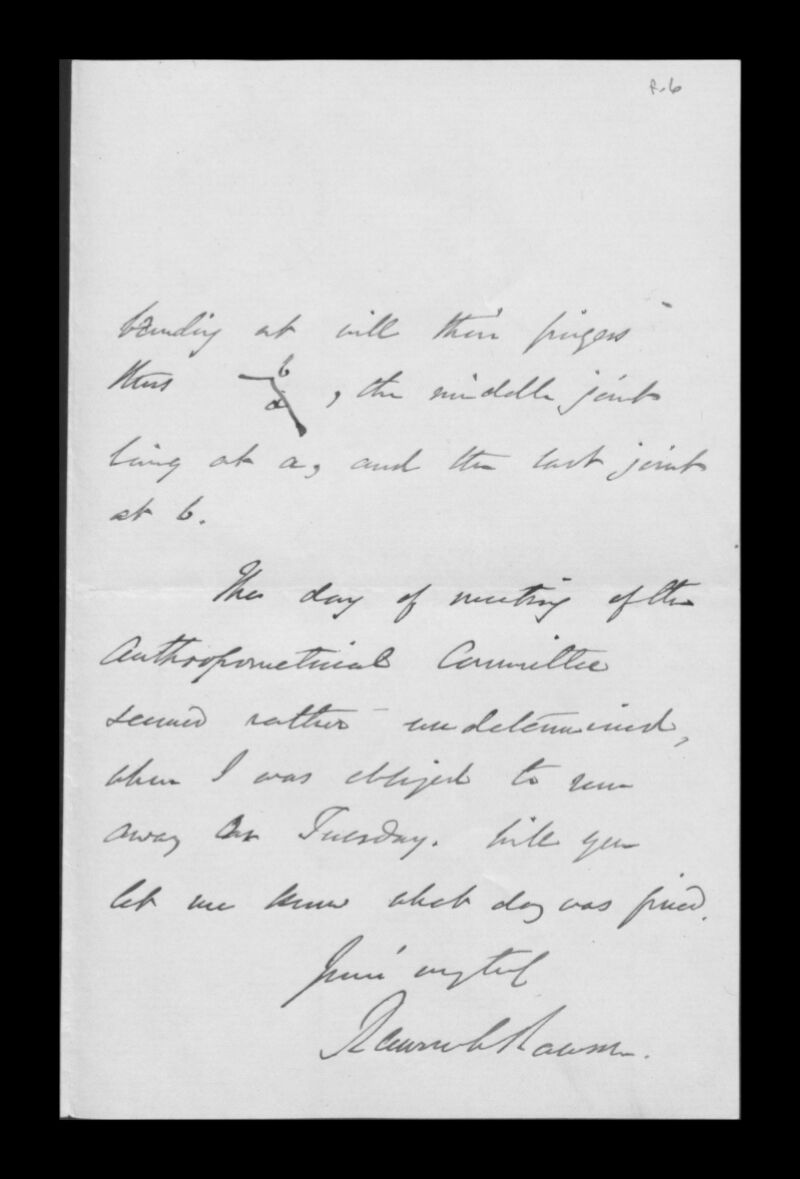 f.6
bending at will their fingers
thus b
a , the middle joint
being at a, and the last joint
at b.
The day of meeting of the
Anthropometrical Committee
seemed rather undetermined,
when I was obliged to run
away on Tuesday. Will you
let me know what day was fixed.
Yours very truly
Rawson W Rawson.